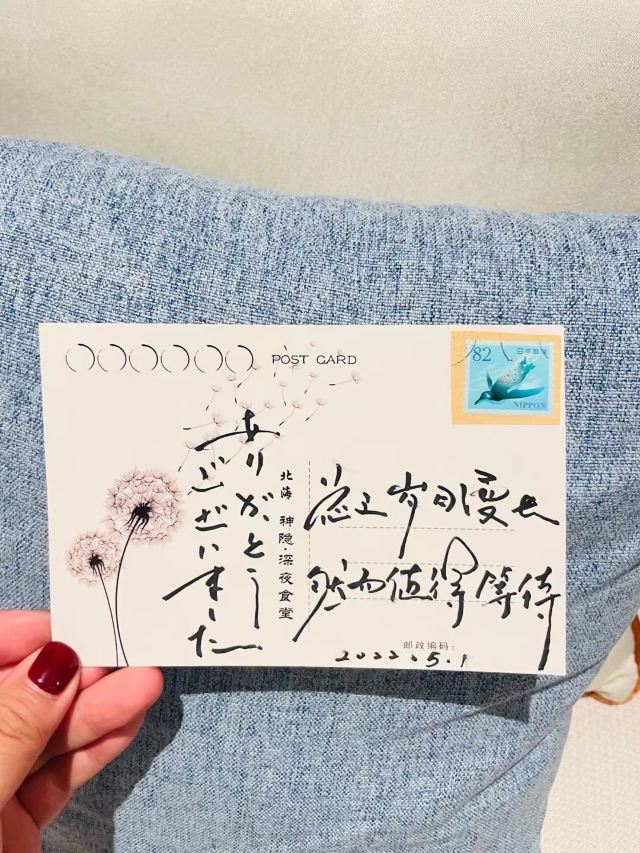 POST CARD
82 日本郵便
NIPPON
ありがとう
ございました
北海 神隐·深夜食堂
总之岁月漫长
然而值得等待
邮政编码:
2022.5.1